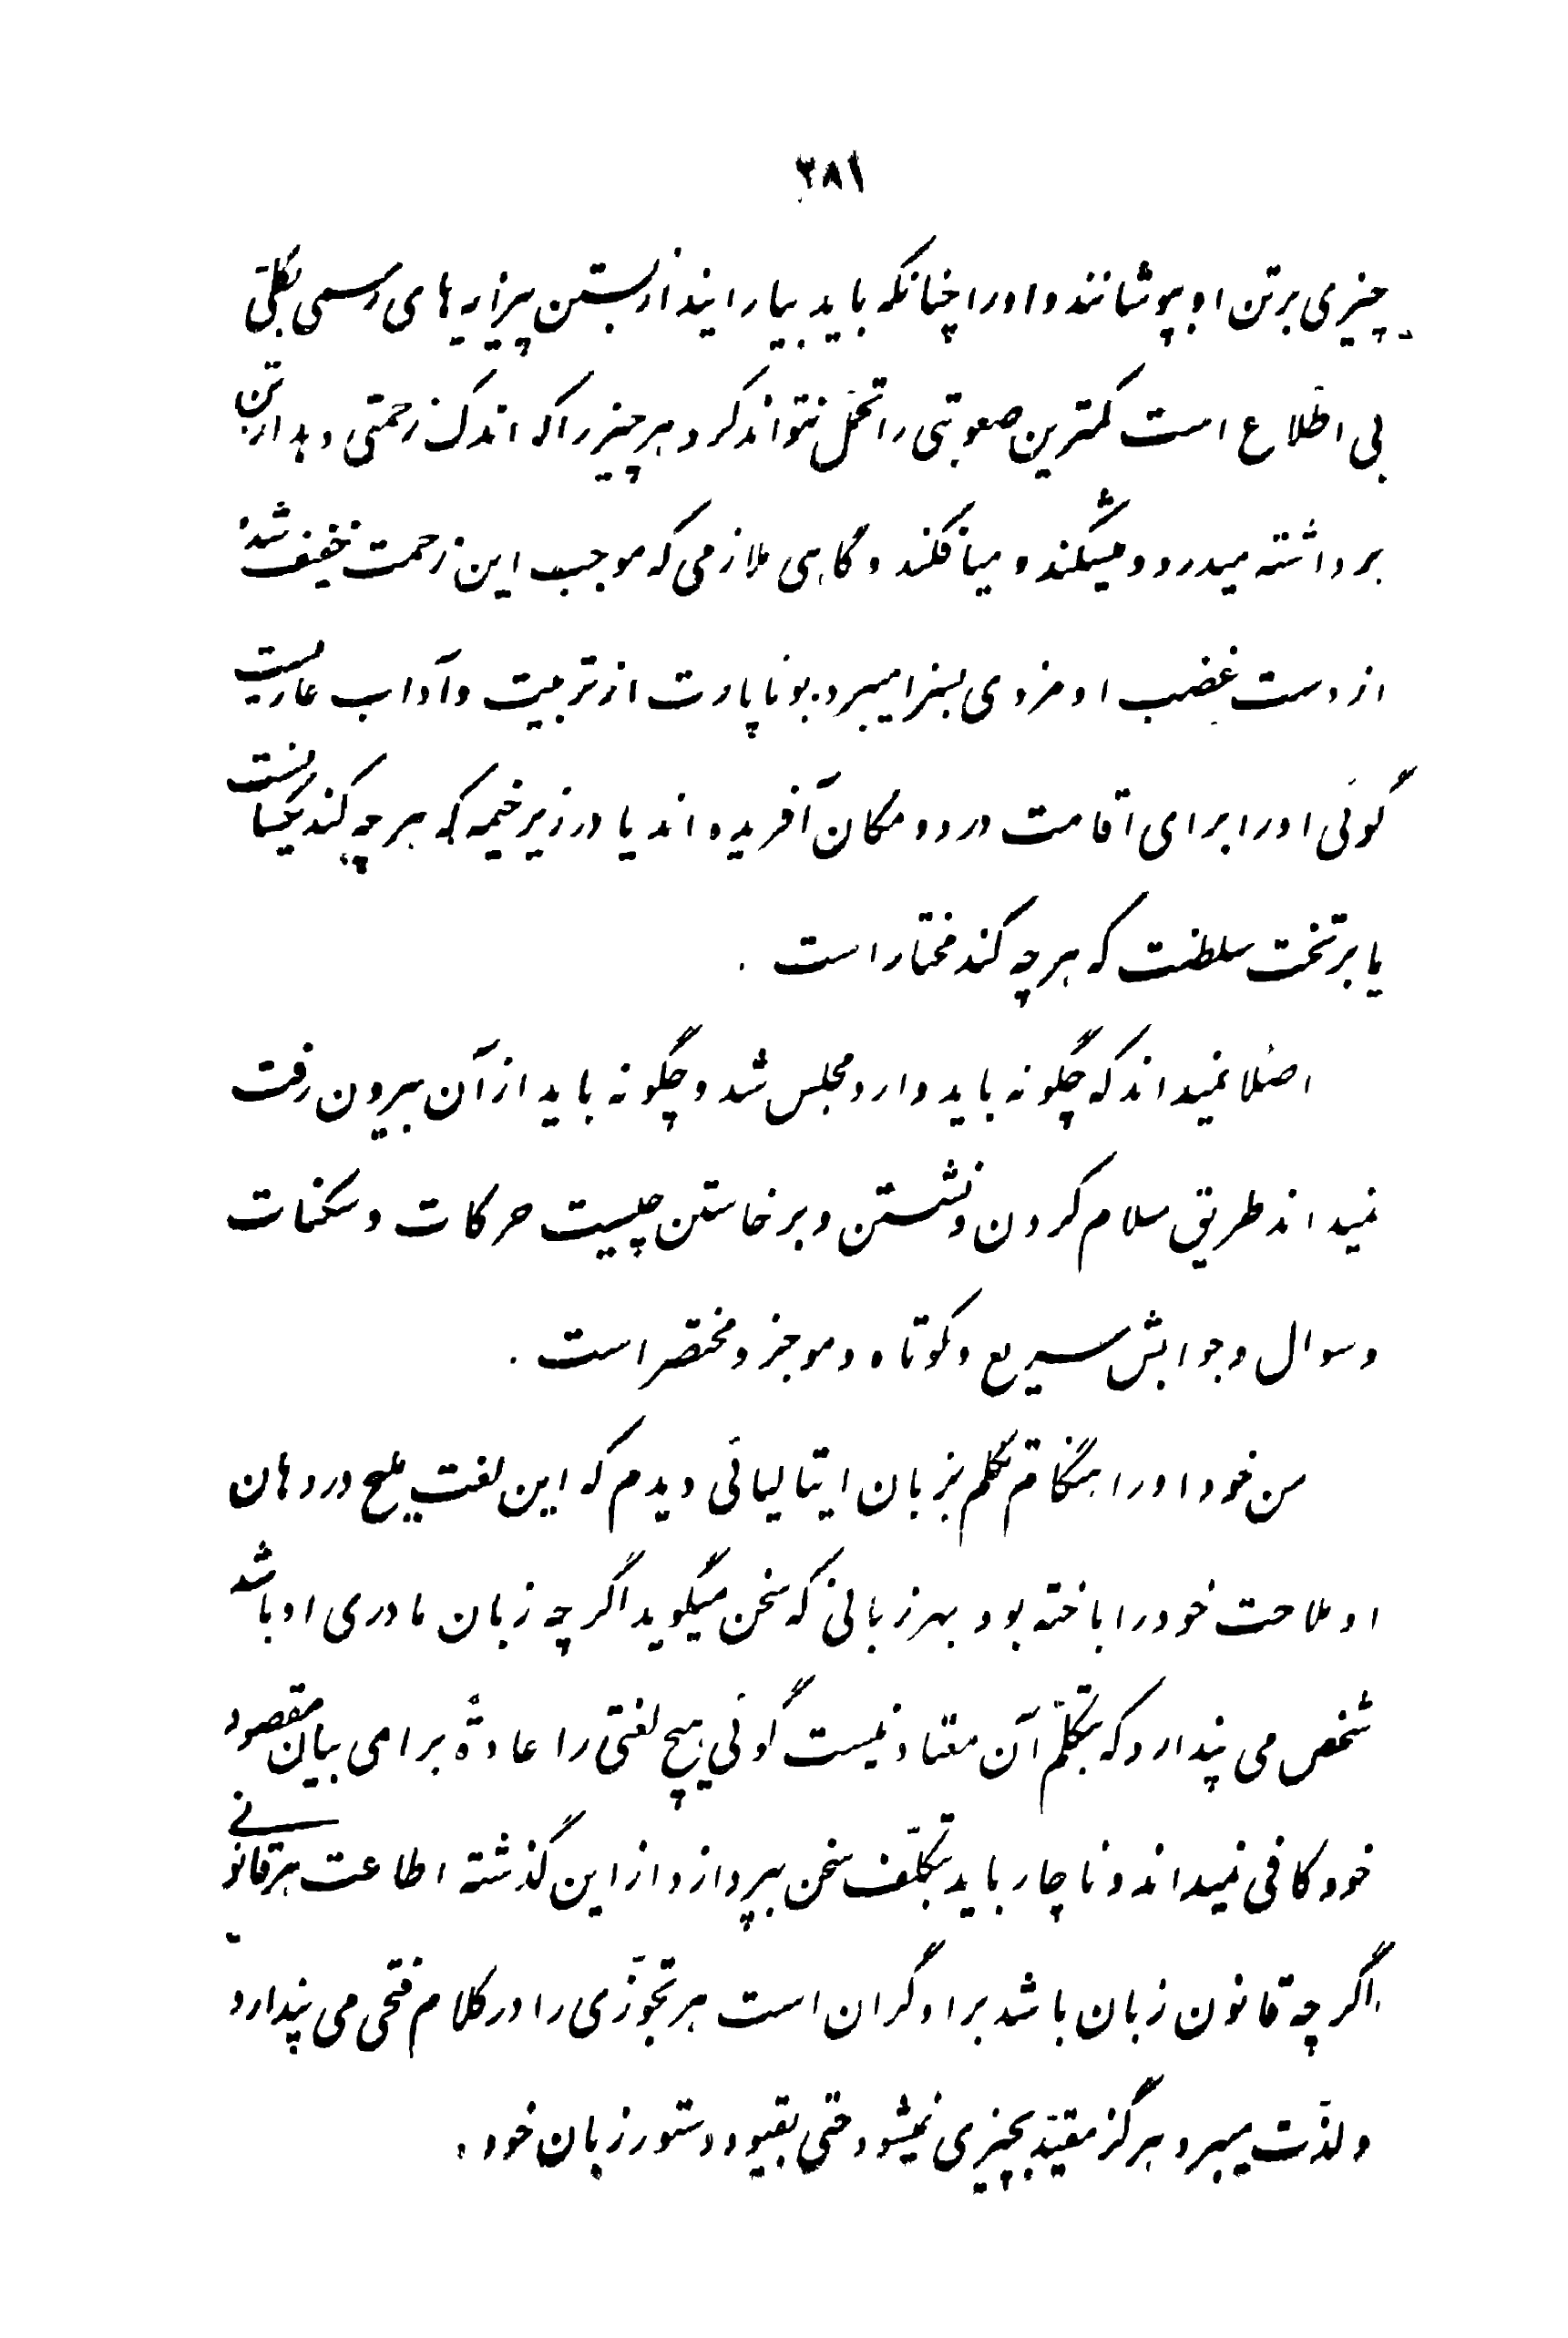 ۳۸۱
چیزی بر تن او بپوشانند و او را چنانکه باید بیارایند از بستن پیرایه های رسمی بکلّی
بی اطّلاع است کمترین صعوبتی را تحمّل نتواند کرد هر چیز را که اندک زحمتی دهد از تن
برداشته میدرد و میشکند و میافکند و گاهی ملازمی که موجب این زحمت خفیف شده
از دست غضب او مزدی بسزا میبرد. بوناپارت از تربیت و آداب عاریست
گوئی او را برای اقامت در دو مکان آفریده اند یا در زیر خیمه که هر چه کند یکسانست
یا بر تخت سلطنت که هر چه کند مختار است .
اصلا نمیداند که چگونه باید وارد مجلس شد و چگونه باید از آن بیرون رفت
نمیداند طریق سلام کردن و نشستن و برخاستن چیست حرکات و سکنات
و سوال و جوابش سریع و کوتاه و موجز و مختصر است .
من خود او را هنگام تکلم بزبان ایتالیائی دیدم که این لغت ملیح در دهان
او ملاحت خود را باخته بود بهر زبانی که سخن میگوید اگر چه زبان مادری او باشد
شخص می پندارد که بتکلّم آن معتاد نیست گوئی هیچ لغتی را عادةً برای بیان مقصود
خود کافی نمیداند و ناچار باید بتکلّف سخن بپردازد از این گذشته اطاعت هر قانونی
اگر چه قانون زبان باشد بر او گران است هر تجوّزی را در کلام فتحی می پندارد
و لذّت میبرد هرگز مقیّد بچیزی نمیشود حتی بقیود دستور زبان خود .